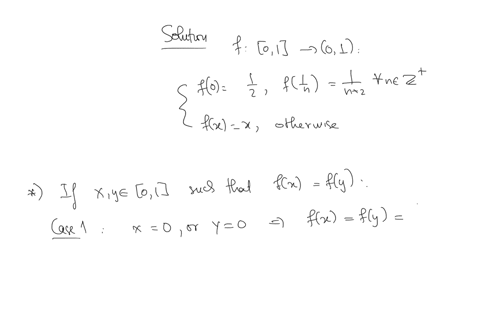 Solution f: [0,1] → (0,1):
f(0) = 1/2, f(1/n) = 1/(n+2) ∀n∈ℤ⁺
f(x) = x, otherwise
*) If x,y∈[0,1] such that f(x) = f(y).
Case 1: x = 0, or y = 0 ⇒ f(x) = f(y) =